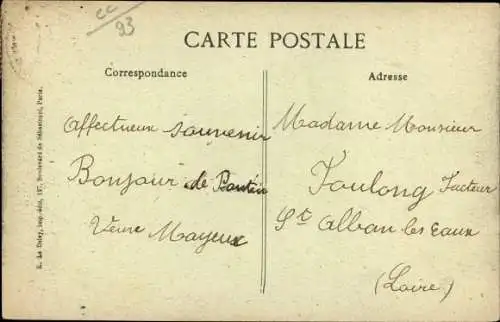 CC
93
CARTE POSTALE
Correspondance
Affectueux souvenir
Bonjour de Pantin
Veuve Mayeux
Adresse
Madame Monsieur
Toulong facteur
St Alban les Eaux
(Loire)
E. Le Deley, imp.-édit., 127, Boulevard de Sébastopol, Paris.